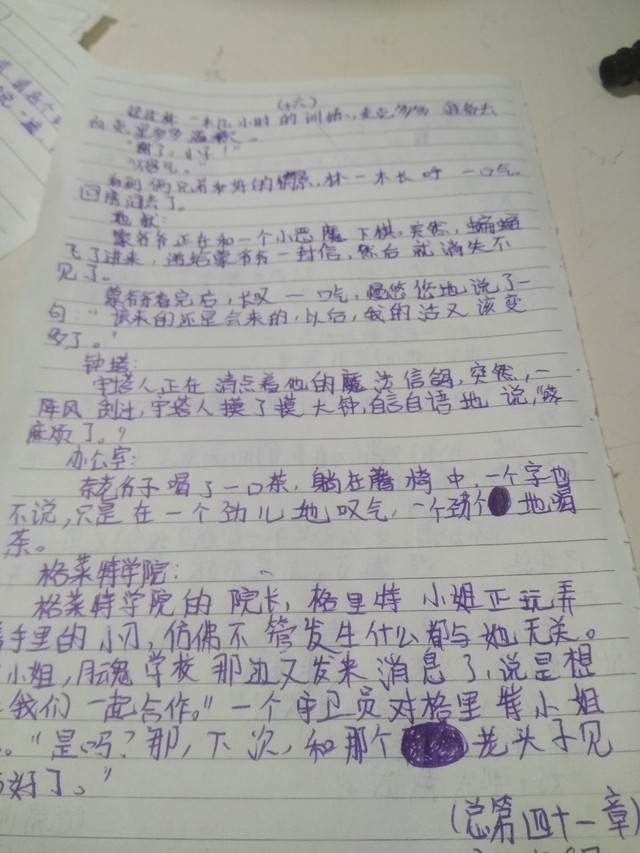 (十六)
一木几小时的训练,麦克多多 准备去
向克里多多道歉。
"谢了,
"不客气。"
看到俩兄弟和好的情景,林一木长呼一口气。
回房间去了。
地狱:
蒙爷爷正在和一个小恶魔下棋,突然,蝙蝠
飞了进来,递给蒙爷爷一封信,然后就消失不
见了。
蒙爷爷看完后,长叹一口气,慢悠悠地说了一
句:"该来的还是会来的,以后,我的活又该变
多了。"
钟塔:
守塔人正在清点着他的魔法信鸽,突然,一
阵风刮过,守塔人摸了摸大钟,自言自语地说,"
麻烦了。"
办公室:
老爷子喝了一口茶,躺在藤椅中,一个字也
不说,只是在一个劲儿地叹气,一个劲个地喝
茶。
格莱特学院:
格莱特学院的院长,格里特小姐正玩弄
手里的小刀,仿佛不管发生什么都与她无关。
小姐,月魂学校那边又发来消息了,说是想
我们一起合作。"一个守卫员对格里特小姐
。"是吗?那,下次,和那个老头子见
好了。"
(总第四十一章)